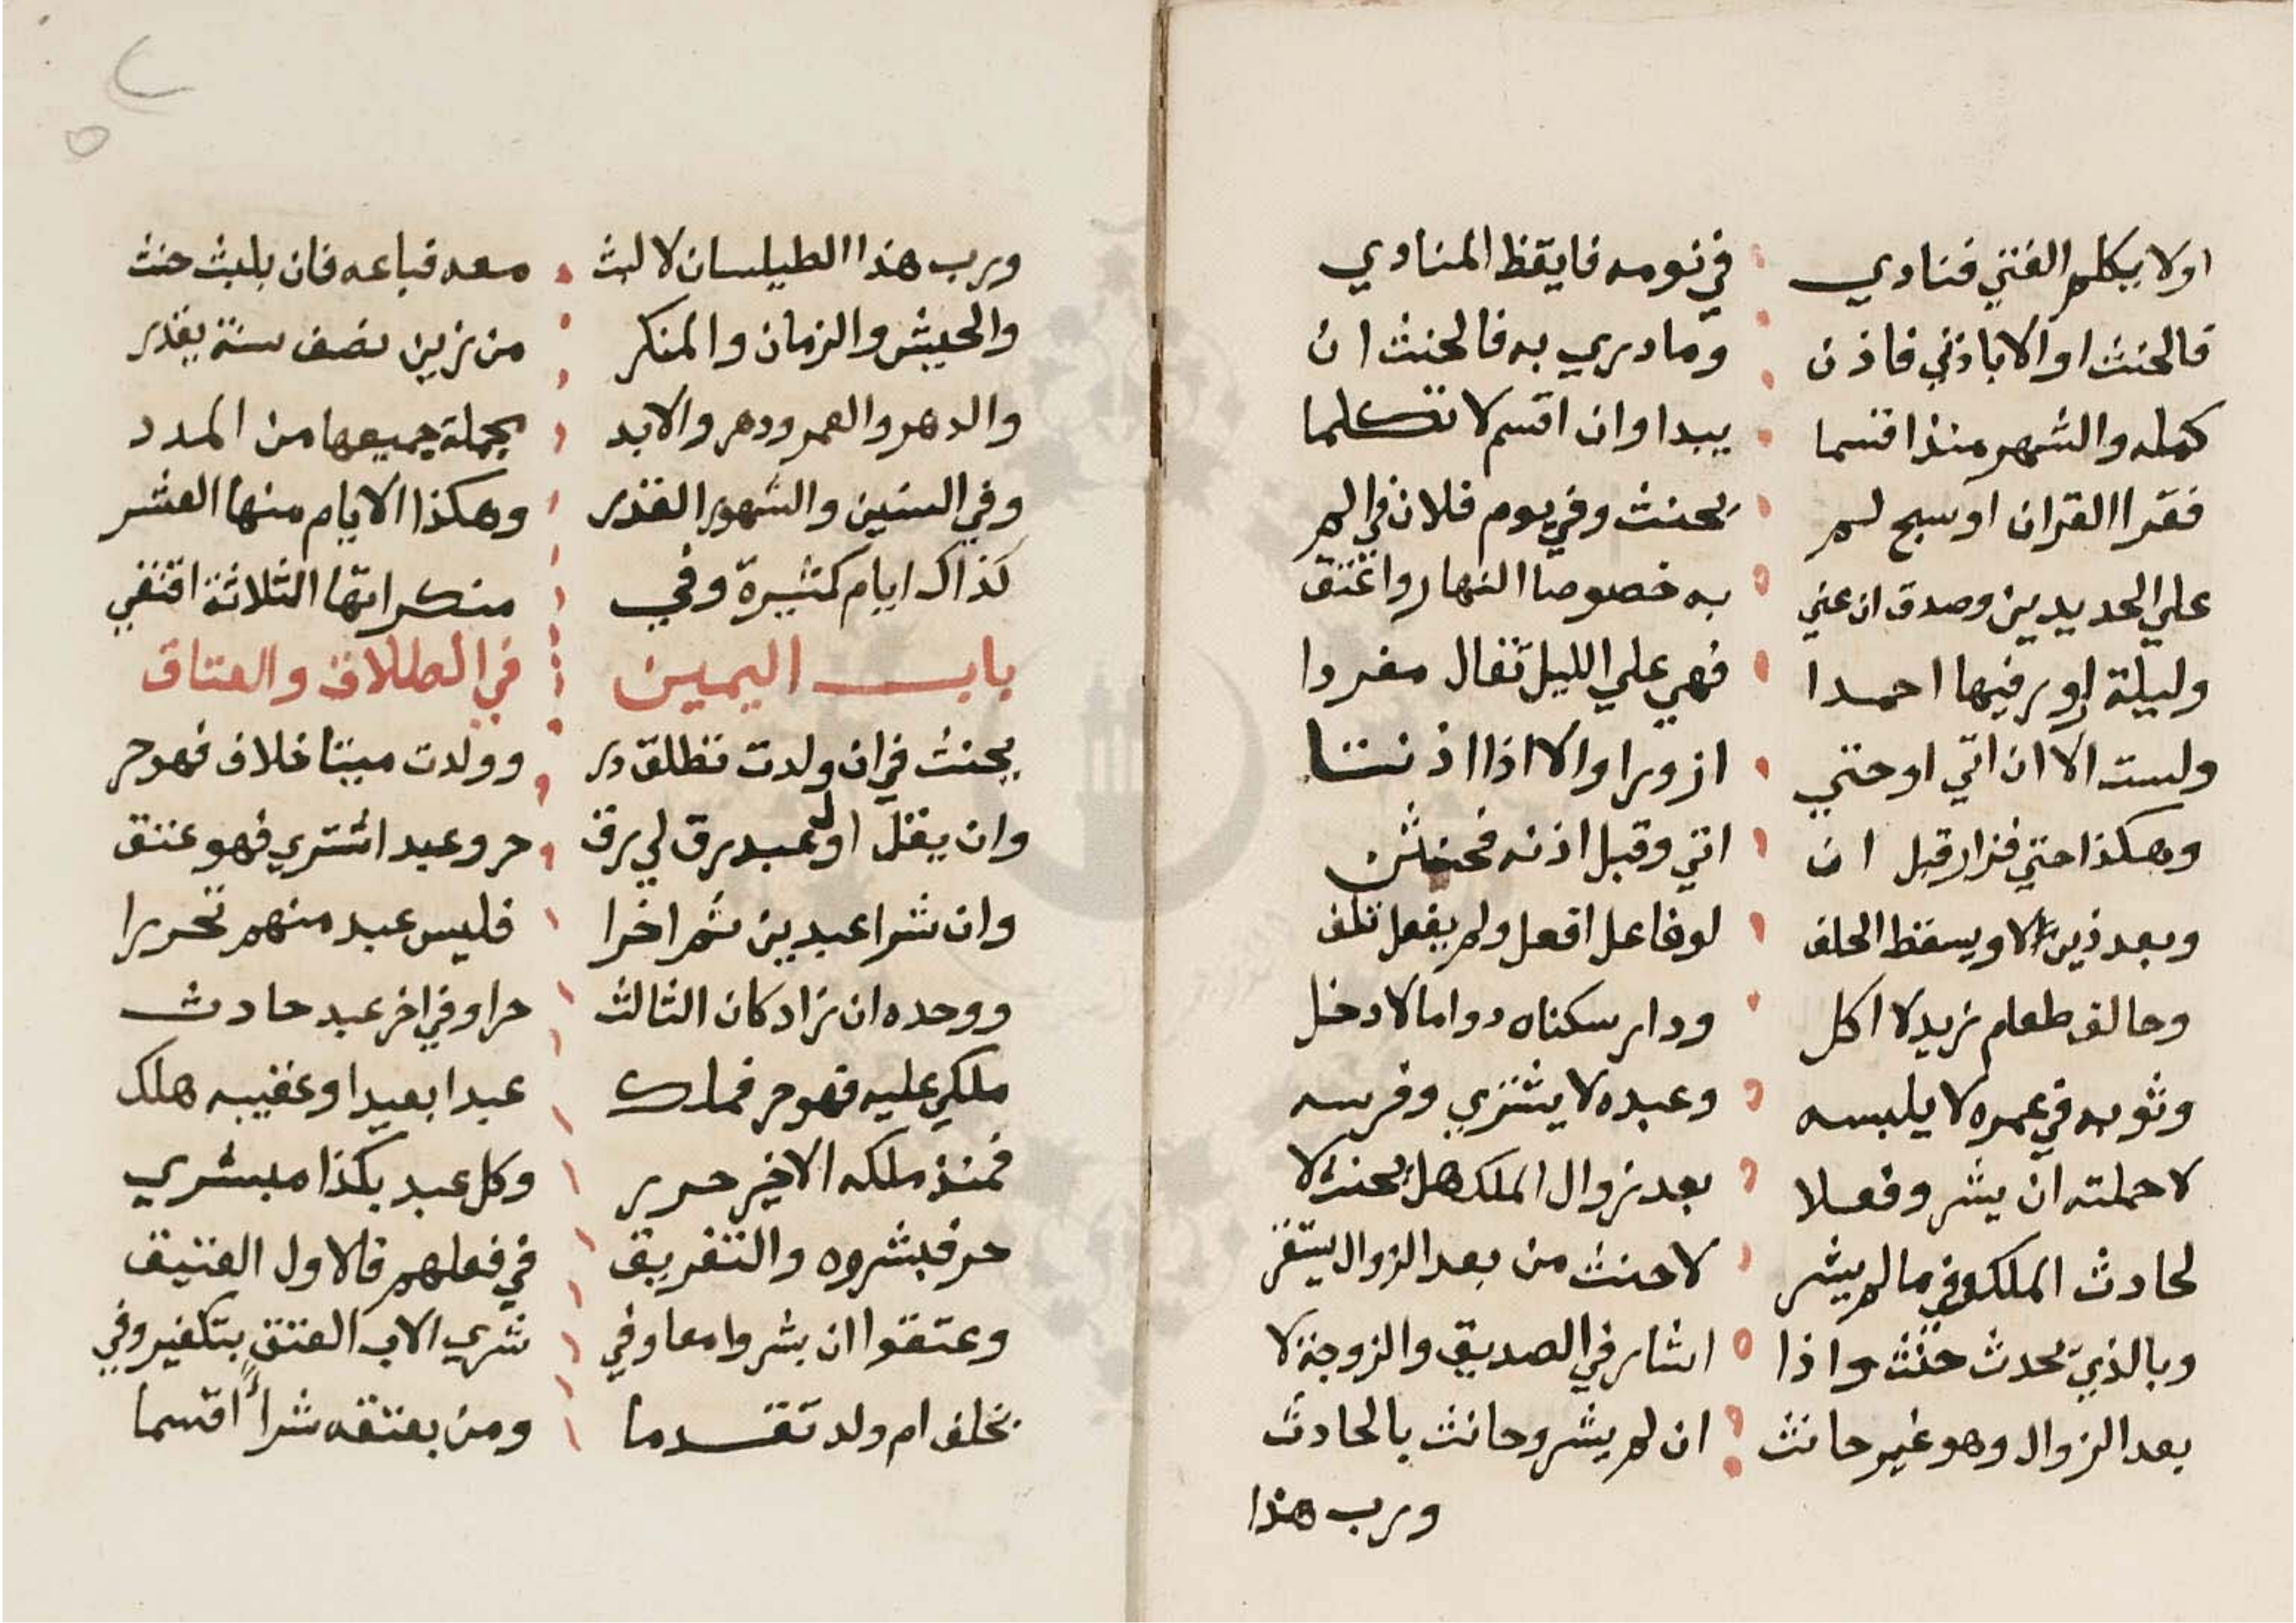 اولا يكلم الفتي فنادي في نومه فايقظ المنادي
فالحنث او الا باذني فاذن وما دري به فالحنث ان
كمله والشهر منذ اقسما يبدا وان اقسم لا تكلما
فقرا القران او سبح لم يحنث وفي يوم فلان في الم
علي الحديدين وصدق ان عني به خصوصا النهار واغتق
وليلة اوبر فيها احمدا فهي علي الليل تقال مفردا
ولست الا ان اتي او حتي ازورا والا اذا اذنتا
وهكذا حتي فزار قبل ان اتي وقبل اذنه فحنثن
وبعد ذين لا ويسقط الحلف لو فاعل افعل ولم يفعل تلف
وحالف طعام زيد لا اكل ودار سكناه دواما لا دخل
وثوبه في عمره لا يلبسه وعبده لا يشتري وفرسه
لا حملته ان يشر وفعلا بعد زوال الملك هل يحنث لا
لحادث الملك وفي ما لم يشر لا حنث من بعد الزوال يستقر
وبالذي يحدث حنث واذا اشار في الصديق والزوجة لا
بعد الزوال وهو غير حانث ان لم يشر وحانث بالحادث
ورب هذا
ورب هذا الطيلسان لا لبث معه فباعه فان بلبث حنث
والحيش والزمان والمنكر من زين نصف سنة يقدر
والدهر والعمر ودهر والابد بجملة جميعها من المدد
وفي السنين والشهور القدر وهكذا الايام منها العشر
كذاك ايام كثيرة وفي منكراتها الثلاثة اقتفي
باب اليمين في الطلاق والعتاق
يحنث في ان ولدت تطلق در وولدت ميتا خلاف فهو حر
وان يقل اول عبد رق لي رق حر وعبد اشتري فهو عتق
وان شرا عبدين ثم اخرا فليس عبد منهم تحررا
ووحده ان زاد كان الثالث حرا وفي اخر عبد حادث
ملكي عليه فهو حر فملك عبدا بعيدا وعقيبه هلك
فمنذ ملكه الاخير حرر وكل عبد بكذا مبشري
حر فبشروه والتفريق في فعلهم فالاول العتيق
وعتقوا ان بشروا معا وفي شري الاب العتق بتكفير وفي
بخلف ام ولد تقدما ومن بعتقه شراء اقسما